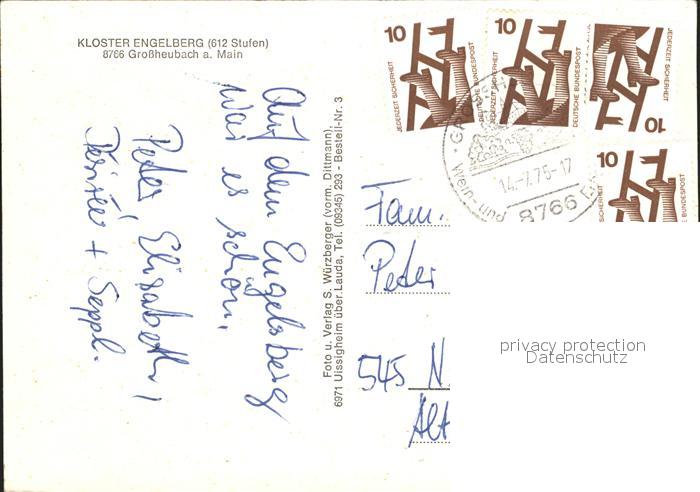 KLOSTER ENGELBERG (612 Stufen)
8766 Großheubach a. Main
Auf dem Engelsberg
war es schön.
Peter Elisabeth,
+ Seppl.
Foto u. Verlag S. Würzberger (vorm. Dittmann),
6971 Uissigheim über Lauda, Tel. (09345) 293 - Bestell-Nr. 3
10
JEDERZEIT SICHERHEIT
DEUTSCHE BUNDESPOST
10
JEDERZEIT SICHERHEIT
DEUTSCHE BUNDESPOST
10
JEDERZEIT SICHERHEIT
DEUTSCHE BUNDESPOST
10
SICHERHEIT
BUNDESPOST
Wein- und
14.-7.76-17
8766
Fam.
Peter
545 N.
Alt
privacy protection
Datenschutz